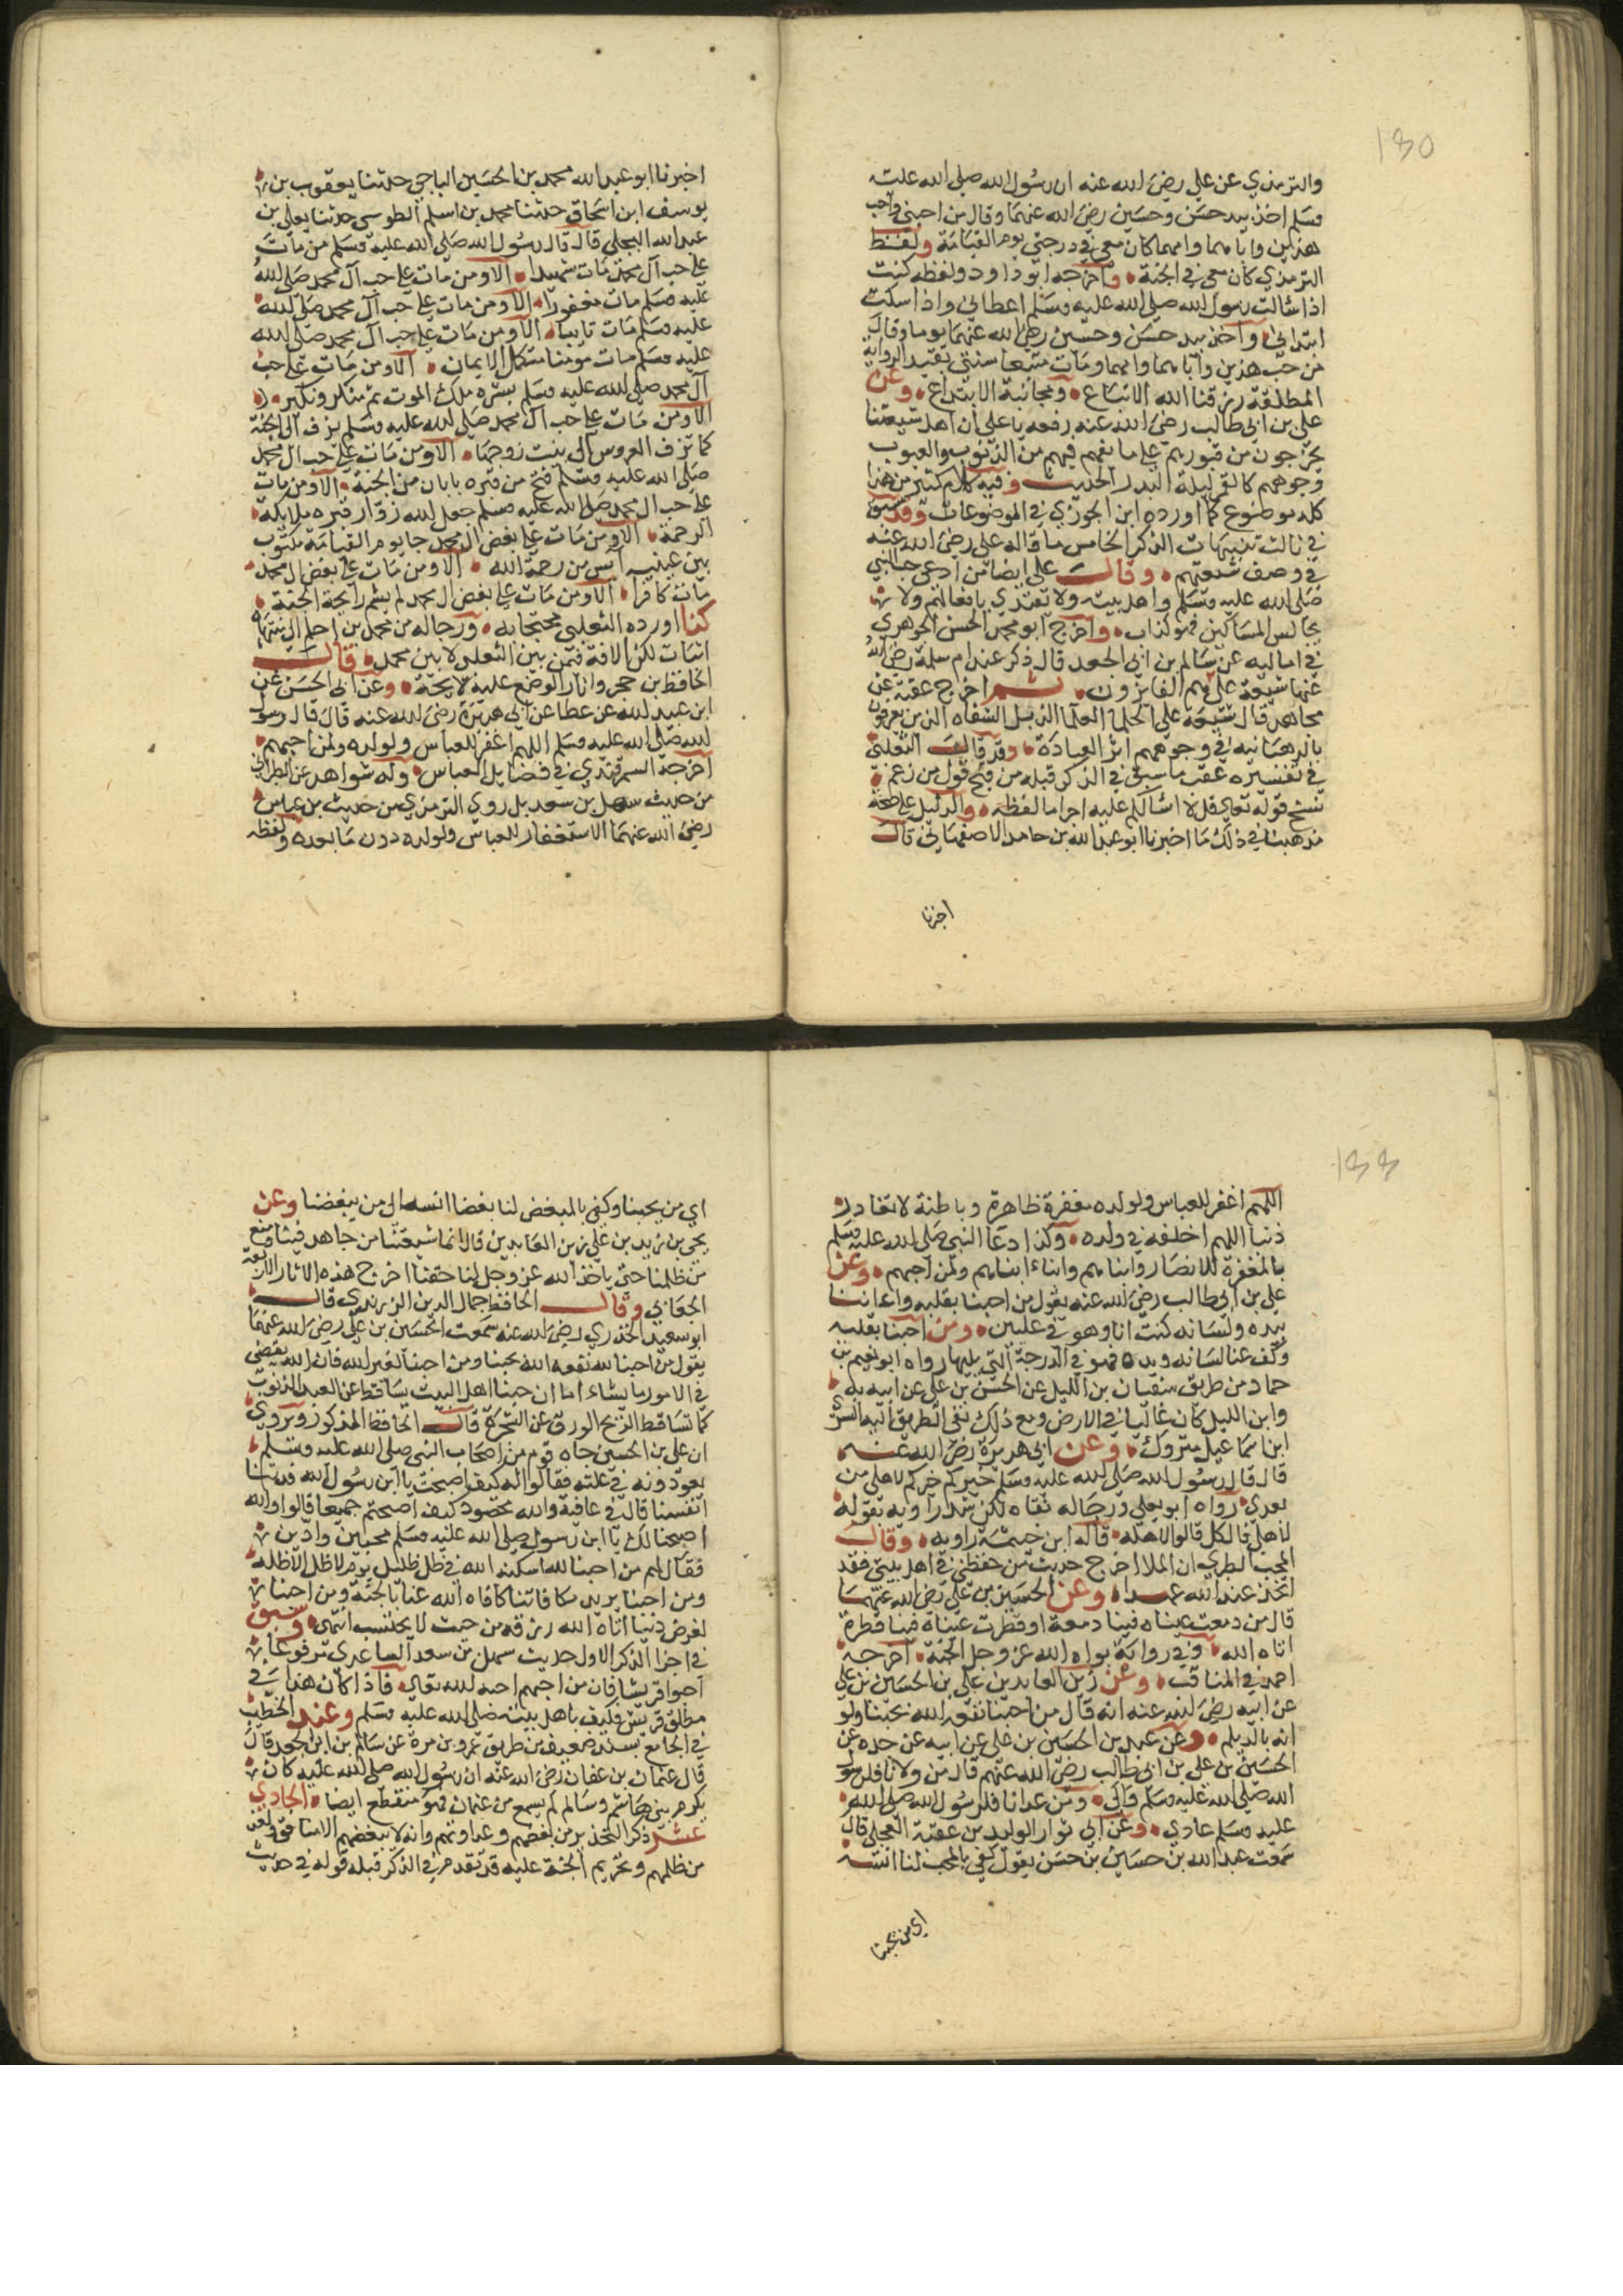 ١٣٥
والترمذي عن علي رضي الله عنه ان رسول الله صلى الله عليه
وسلم اخذ بيد حسن وحسين رضي الله عنهما وقال من احبني واحب
هذين واباهما وامهما كان معي في درجتي يوم القيامة ولفظ
الترمذي كان معي في الجنة واخرجه ابو داود ولفظه كنت
اذا سالت رسول الله صلى الله عليه وسلم اعطاني واذا سكت
ابتداني واخذ بيد حسن وحسين رضي الله عنهما يوما وقال
من حب هذين واباهما وامهما ومات متبعا سنتي بقيد الرواية
المطلقة رزقنا الله الاتباع ومجانبة الابتداع وعن
علي بن ابي طالب رضي الله عنه رفعه يا علي ان اهل شيعتنا
يخرجون من قبورهم على ما بهم فيهم من الذنوب والعيوب
وجوههم كالقمر ليلة البدر الحديث وفيه كلام كثير من هذا
كله موضوع كما اورده ابن الجوزي في الموضوعات وقد سبق
في ثالث تنبيهات الذكر الخامس ما قاله علي رضي الله عنه
في وصف شيعتهم وقال علي ايضا من ادعى حب النبي
صلى الله عليه وسلم واهل بيته ولا يقتدي بافعالهم ولا
يجالس المساكين فهو كذاب واخرج ابو محمد الحسن الجوهري
في اماليه عن سالم بن ابي الجعد قال ذكر عند ام سلمة رضي الله
عنها شيعة علي هم الفايزون ثم اخرج عقبه عن
مجاهد قال شيعة علي الحلما العلما الذبل الشفاه الذين يعرفون
بالرهبانيه في وجوههم اثر العبادة وقد قال الثعلبي
في تفسيره عقب ما سبق في الذكر قبله من قبح قول من زعم
نسخ قوله تعالى قل لا اسالكم عليه اجرا ما لفظه والدليل على صحة
مذهبنا في ذلك ما اخبرنا ابو عبد الله بن حامد الاصفهاني قال
اخبرنا
اخبرنا ابو عبد الله محمد بن الحسين الباجي حدثنا يعقوب بن
يوسف ابن اسحاق حدثنا محمد بن اسلم الطوسي حدثنا يعلى بن
عبد الله البجلي قال قال رسول الله صلى الله عليه وسلم من مات
على حب آل محمد مات شهيدا الا ومن مات على حب آل محمد صلى الله
عليه وسلم مات مغفورا الا ومن مات على حب آل محمد صلى الله
عليه وسلم مات تايبا الا ومن مات على حب آل محمد صلى الله
عليه وسلم مات مومنا مستكمل الايمان الا ومن مات على حب
آل محمد صلى الله عليه وسلم بشره ملك الموت ثم منكر ونكير
الا ومن مات على حب آل محمد صلى الله عليه وسلم يزف الى الجنة
كما تزف العروس الى بيت زوجها الا ومن مات على حب ال محمد
صلى الله عليه وسلم فتح من قبره بابان من الجنة الا ومن مات
على حب ال محمد صلى الله عليه وسلم جعل الله زوار قبره ملايكة
الرحمة الا ومن مات على بغض ال محمد جا يوم القيامة مكتوب
بين عينيه آيس من رحمة الله الا ومن مات على بغض ال محمد
مات كافرا الا ومن مات على بغض ال محمد لم يشم رايحة الجنة
كذا اورده الثعلبي محتجا به ورجاله من محمد بن اسلم الى منتهاه
اثبات لكن الافة فيمن بين الثعلبي وبين محمد قال
الحافظ بن حجر واثار الوضع عليه لايحة وعن ابي الحسن عن
ابن عبيد الله عن عطا عن ابي هريرة رضي الله عنه قال قال رسول
الله صلى الله عليه وسلم اللهم اغفر للعباس ولولده ولمن احبهم
اخرجه السمرقندي في فضايل العباس وله شواهد عن الطبراني
من حديث سهل بن سعد بل روى الترمذي من حديث بن عباس
رضي الله عنهما الاستغفار للعباس ولولده دون ما بعده ولفظه
١٣٦
اللهم اغفر للعباس ولولده مغفرة ظاهرة وباطنة لا تغادر
ذنبا اللهم اخلفه في ولده وكذا دعا النبي صلى الله عليه وسلم
بالمغفرة للانصار وابنايهم وابناء ابنايهم ولمن احبهم وعن
علي بن ابي طالب رضي الله عنه يقول من احبنا بقلبه واعاننا
بيده ولسانه كنت انا وهو في عليين ومن احبنا بقلبه
وكف عنا لسانه ويده فهو في الدرجة التي يليها رواه ابو نعيم بن
حماد من طريق سفيان بن الليل عن الحسن بن علي عن ابيه به
وابن الليل كان غاليا في الارض ومع ذلك ففي الطريق اليه السري
ابن اسماعيل متروك وعن ابي هريرة رضي الله عنه
قال قال رسول الله صلى الله عليه وسلم خيركم خيركم لاهلي من
بعدي رواه ابو يعلى ورجاله ثقاه لكن شذ راويه بقوله
لاهلي قال كل قالوا لاهله قاله ابن خيثمة راويه وقال
المحب الطبري ان الملا اخرج حديث من حفظني في اهل بيتي فقد
اتخذ عند الله عهدا وعن الحسين بن علي رضي الله عنهما
قال من دمعت عيناه فينا دمعة او قطرت عيناه فينا قطرة
اتاه الله وفي رواية بواه الله عز وجل الجنة اخرجه
احمد في المناقب وعن زين العابدين علي بن الحسين بن علي
عن ابيه رضي الله عنه انه قال من احبنا نفعه الله بحبنا ولو
انه بالديلم وعن عبد بن الحسين بن علي عن ابيه عن جده عن
الحسين بن علي بن ابي طالب رضي الله عنهم قال من والانا فلرسول
الله صلى الله عليه وسلم والى ومن عدانا فلرسول الله صلى الله
عليه وسلم عادى وعن ابي نوار الوليد بن عقبة العجلي قال
سمعت عبد الله بن حسين بن حسن يقول كفى بالمحب لنا انسه
اي من يحبنا
اي من يحبنا وكفى بالمبغض لنا بغضا انسه الى من يبغضنا وعن
يحيى بن زيد بن علي زين العابدين قال انما شيعتنا من جاهد فينا ومنع
من ظلمنا حتى ياخذ الله عز وجل لنا حقنا اخرج هذه الاثار الاربعة
الجعابي وقال الحافظ جمال الدين الزرندي قال
ابو سعيد الخدري رضي الله عنه سمعت الحسين بن علي رضي الله عنهما
يقول من احبنا لله نفعه الله بحبنا ومن احبنا لغير الله فان الله يقضي
في الامور ما يشاء اما ان حبنا اهل البيت يساقط عن العبد الذنوب
كما تساقط الريح الورق عن الشجرة قال الحافظ المذكور ويروى
ان علي بن الحسين جاه قوم من اصحاب النبي صلى الله عليه وسلم
يعودونه في علته فقالوا له كيف اصبحت يا ابن رسول الله فدتك
انفسنا قال في عافية والله محمود كيف اصبحتم جميعا قالوا والله
اصبحنا لك يا ابن رسول صلى الله عليه وسلم محبين وادين
فقال لهم من احبنا لله اسكنه الله في ظل ظليل يوم لا ظل الا ظله
ومن احبنا يريد مكافاتنا كافاه الله عنا بالجنة ومن احبنا
لغرض دنيا اتاه الله رزقه من حيث لا يحتسب انتهى وسبق
في اجزا الذكر الاول حديث سهل بن سعد الساعدي مرفوعا
احبوا قريشا فان من احبهم احبه الله تعالى فاذا كان هذا في
مطلق قريش فكيف باهل بيته صلى الله عليه وسلم وعند الخطيب
في الجامع بسند ضعيف من طريق عمرو بن مرة عن سالم بن ابي الجعد قال
قال عثمان بن عفان رضي الله عنه ان رسول الله صلى الله عليه كان
يكرم بني هاشم وسالم لم يسمع من عثمان فهو منقطع ايضا الحادي
عشر ذكر التحذير من بغضهم وعداوتهم وانه لا يبغضهم الا منافق ولعن
من ظلمهم وتحريم الجنة عليه قد تقدم في الذكر قبله قوله في حديث